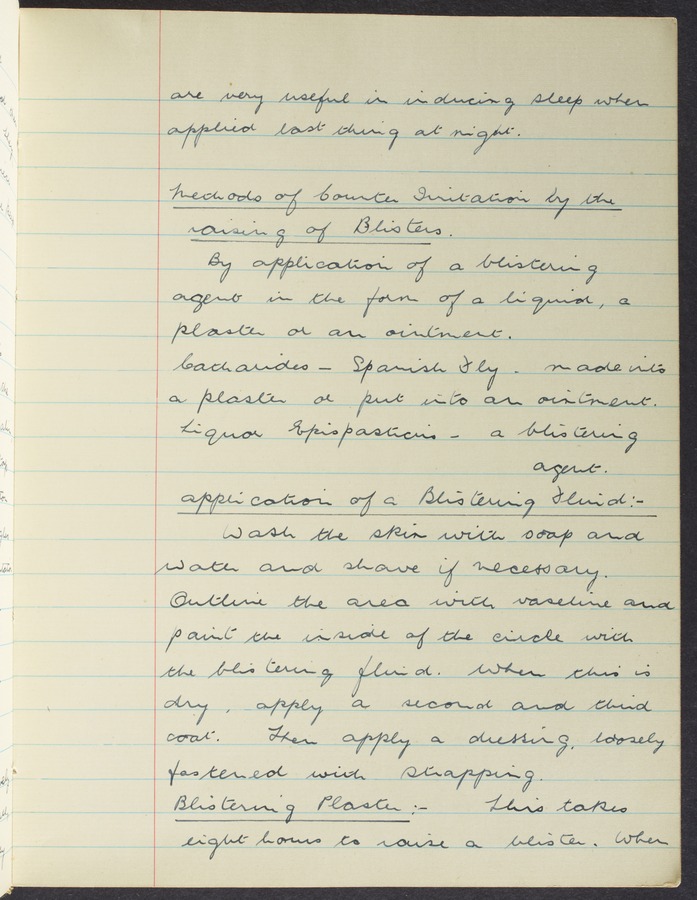 are very useful in inducing sleep when
applied last thing at night.
Methods of Counter Irritation by the
raising of Blisters.
By application of a blistering
agent in the form of a liquid, a
plaster or an ointment.
Catharides - Spanish Fly. made into
a plaster or put into an ointment.
Liquor Epispasticus - a blistering
agent.
application of a Blistering Fluid:-
Wash the skin with soap and
water and shave if necessary.
Outline the area with vaseline and
paint the inside of the circle with
the blistering fluid. When this is
dry, apply a second and third
coat. Then apply a dressing, loosely
fastened with strapping.
Blistering Plaster:- This takes
eight hours to raise a blister. When